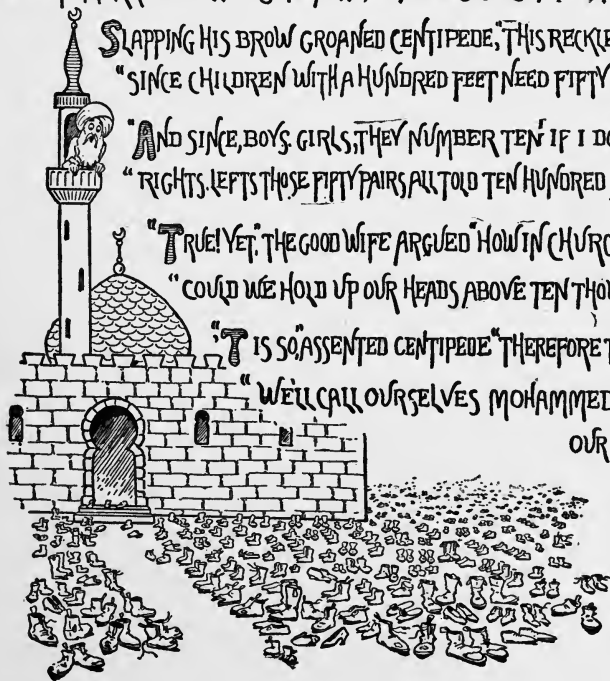 SLAPPING HIS BROW GROANED CENTIPEDE, "THIS RECKLE
"SINCE CHILDREN WITH A HUNDRED FEET NEED FIFTY
"AND SINCE, BOYS. GIRLS, THEY NUMBER TEN IF I DO
"RIGHTS. LEFTS THOSE FIFTY PAIRS ALL TOLD TEN HUNDRED
"TRUE! YET," THE GOOD WIFE ARGUED "HOW IN CHURC
"COULD WE HOLD UP OUR HEADS ABOVE TEN THOU
"TIS SO," ASSENTED CENTIPEDE "THEREFORE T
"WE'LL CALL OURSELVES MOHAMMED
OUR